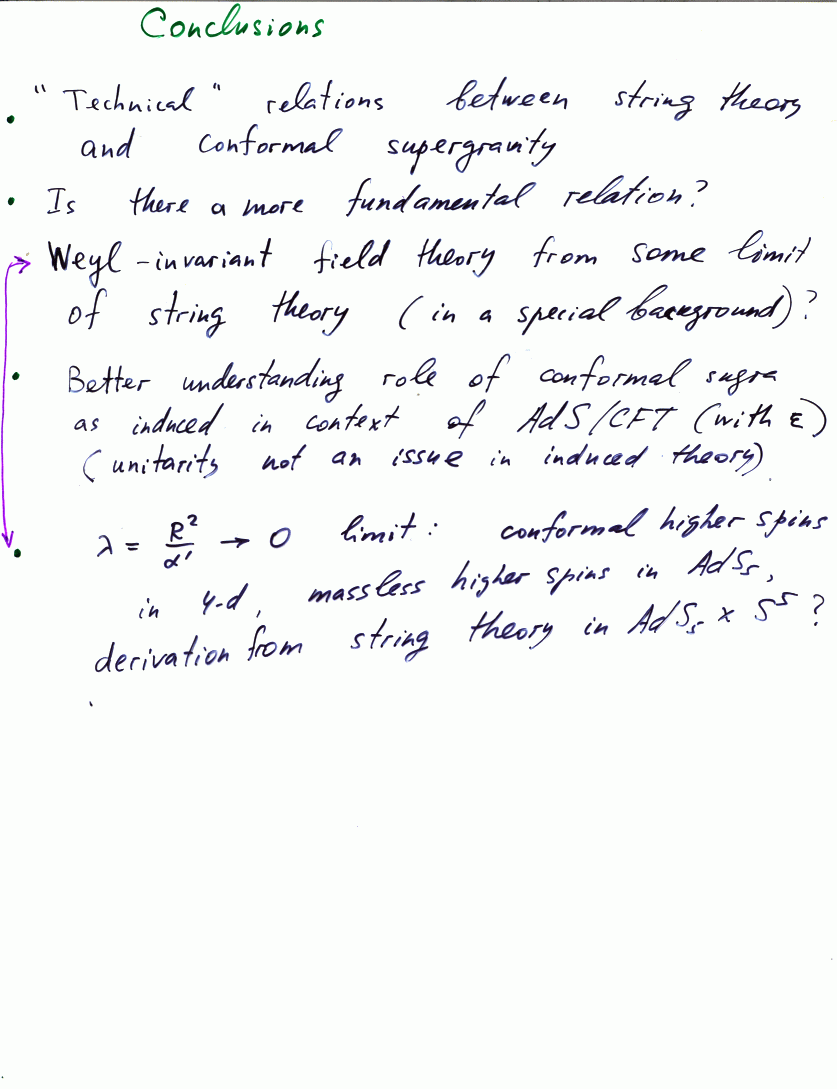 Conclusions
• "Technical" relations between string theory
and conformal supergravity
• Is there a more fundamental relation?
Weyl-invariant field theory from some limit
of string theory (in a special background)?
• Better understanding role of conformal sugra
as induced in context of AdS/CFT (with ε)
(unitarity not an issue in induced theory)
• λ = R²/α' → 0 limit: conformal higher spins
in 4-d, massless higher spins in AdS₅,
derivation from string theory in AdS₅ × S⁵?